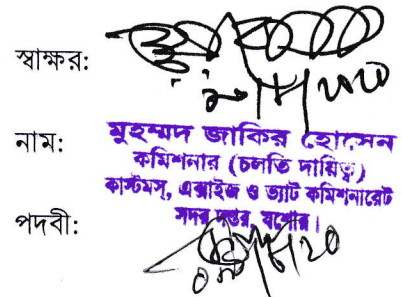 স্বাক্ষর:
নাম: মুহম্মদ জাকির হোসেন
কমিশনার (চলতি দায়িত্ব)
কাস্টমস্, এক্সাইজ ও ভ্যাট কমিশনারেট
পদবী: সদর দপ্তর, যশোর।